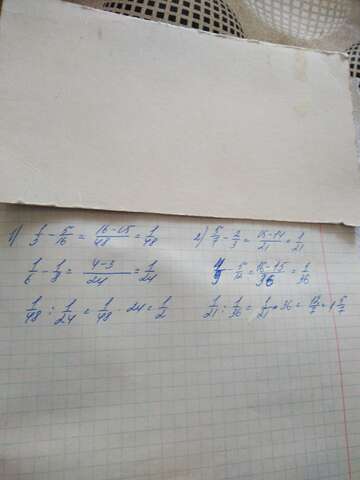 1) 1/3 - 5/16 = 16-15/48 = 1/48
1/6 - 1/8 = 4-3/24 = 1/24
1/48 : 1/24 = 1/48 · 24 = 1/2
2) 5/7 - 2/3 = 15-14/21 = 1/21
4/9 - 5/12 = 16-15/36 = 1/36
1/21 : 1/36 = 1/21 · 36 = 12/7 = 1 5/7